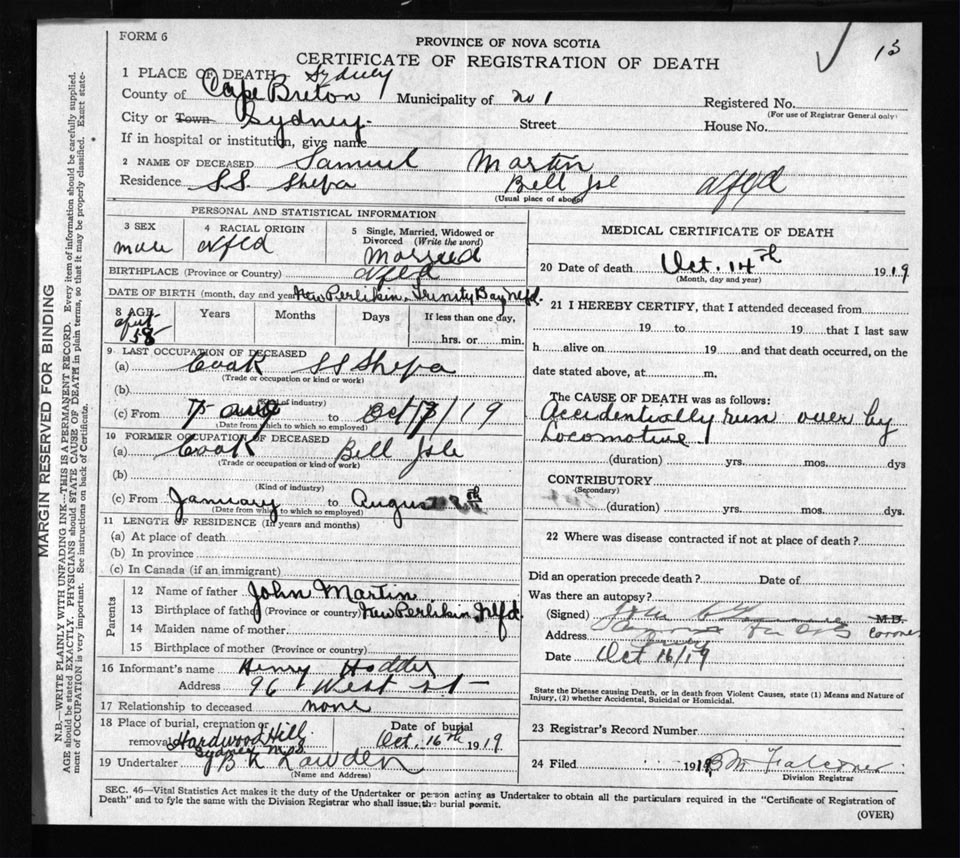 FORM 6
PROVINCE OF NOVA SCOTIA
CERTIFICATE OF REGISTRATION OF DEATH
15
1 PLACE OF DEATH Sydney
County of Cape Breton Municipality of No 1 Registered No.
(For use of Registrar General only)
City or Town Sydney Street House No.
If in hospital or institution, give name
2 NAME OF DECEASED Samuel Martin
Residence S.S. Shepa Bell Isl nfld
(Usual place of abode)
PERSONAL AND STATISTICAL INFORMATION
3 SEX male
4 RACIAL ORIGIN nfld
5 Single, Married, Widowed or Divorced (Write the word) Married
BIRTHPLACE (Province or Country) nfld
DATE OF BIRTH (month, day and year) New Perlikin, Trinity Bay Nfd.
8 AGE 58 Years Months Days If less than one day, hrs. or min.
9 LAST OCCUPATION OF DECEASED
(a) Cook SS Shepa
(Trade or occupation or kind or work)
(b)
(Kind of industry)
(c) From aug to Oct / 19
(Date from which to which so employed)
10 FORMER OCCUPATION OF DECEASED
(a) Cook Bell Isle
(Trade or occupation or kind of work)
(b)
(Kind of industry)
(c) From January to August
(Date from which to which so employed)
11 LENGTH OF RESIDENCE (In years and months)
(a) At place of death
(b) In province
(c) In Canada (if an immigrant)
Parents
12 Name of father John Martin
13 Birthplace of father (Province or country) New Perlikin, Nfd.
14 Maiden name of mother
15 Birthplace of mother (Province or country)
16 Informant's name Henry Hodder
Address 96 West St
17 Relationship to deceased none
18 Place of burial, cremation or removal Hardwood Hill Sydney N S
Date of burial Oct. 16th 1919
19 Undertaker Lowden
(Name and Address)
MEDICAL CERTIFICATE OF DEATH
20 Date of death Oct. 14th 1919
(Month, day and year)
21 I HEREBY CERTIFY, that I attended deceased from
19 to 19 that I last saw
h alive on 19 and that death occurred, on the
date stated above, at m.
The CAUSE OF DEATH was as follows:
Accidentially run over by
Locomotive
(duration) yrs. mos. dys
CONTRIBUTORY
(Secondary)
(duration) yrs. mos. dys.
22 Where was disease contracted if not at place of death?
Did an operation precede death? Date of
Was there an autopsy?
(Signed) M.D.
Address Coroner
Date Oct 16/19
State the Disease causing Death, or in death from Violent Causes, state (1) Means and Nature of
Injury, (2) whether Accidental, Suicidal or Homicidal.
23 Registrar's Record Number
24 Filed 191 Falconer
Division Registrar
SEC. 46—Vital Statistics Act makes it the duty of the Undertaker or person acting as Undertaker to obtain all the particulars required in the "Certificate of Registration of
Death" and to fyle the same with the Division Registrar who shall issue the burial permit.
(OVER)
MARGIN RESERVED FOR BINDING
N.B.—WRITE PLAINLY WITH UNFADING INK—THIS IS A PERMANENT RECORD. Every item of information should be carefully supplied.
AGE should be stated EXACTLY. PHYSICIANS should STATE CAUSE OF DEATH in plain terms, so that it may be properly classified. Exact state-
ment of OCCUPATION is very important. See instructions on back of Certificate.